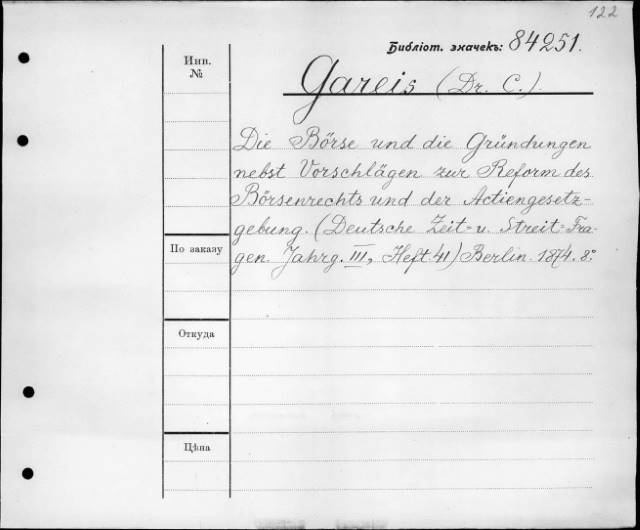 122
Библіот. значекъ: 84251.
Инв.
№
Gareis (Dr. C.).
Die Börse und die Gründungen
nebst Vorschlägen zur Reform des
Börsenrechts und der Actiengesetz-
gebung. (Deutsche Zeit= u. Streit=Fra-
gen. Jahrg. III, Heft 41) Berlin. 1874. 8º.
По заказу
Откуда
Цѣна